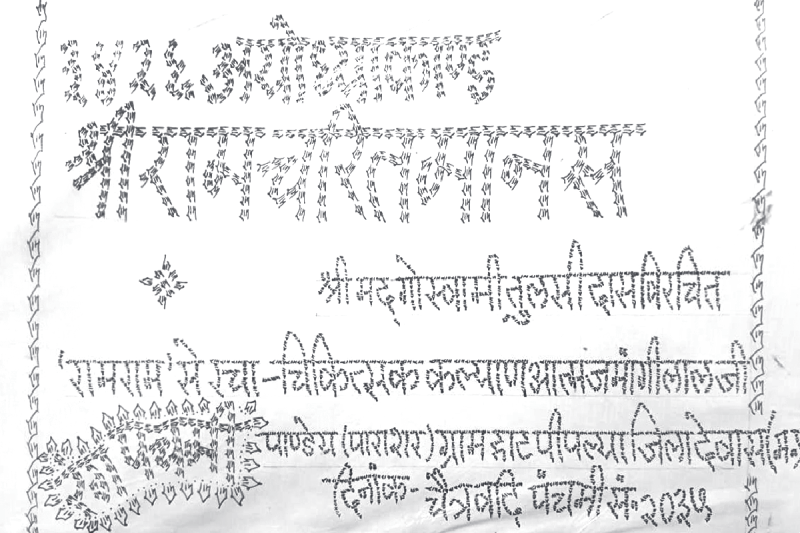 अयोध्याकाण्ड
श्रीरामचरितमानस
श्रीमद्गोस्वामी तुलसीदास विरचित
'रामराम' से रचा - चिकित्सक कल्याण आत्मज मांगीलाल जी
पाण्डेय (पाराशर) ग्राम हाट पीपल्या जिला देवास
दिनांक - चैत्र वदि पंचमी सं. २०३५